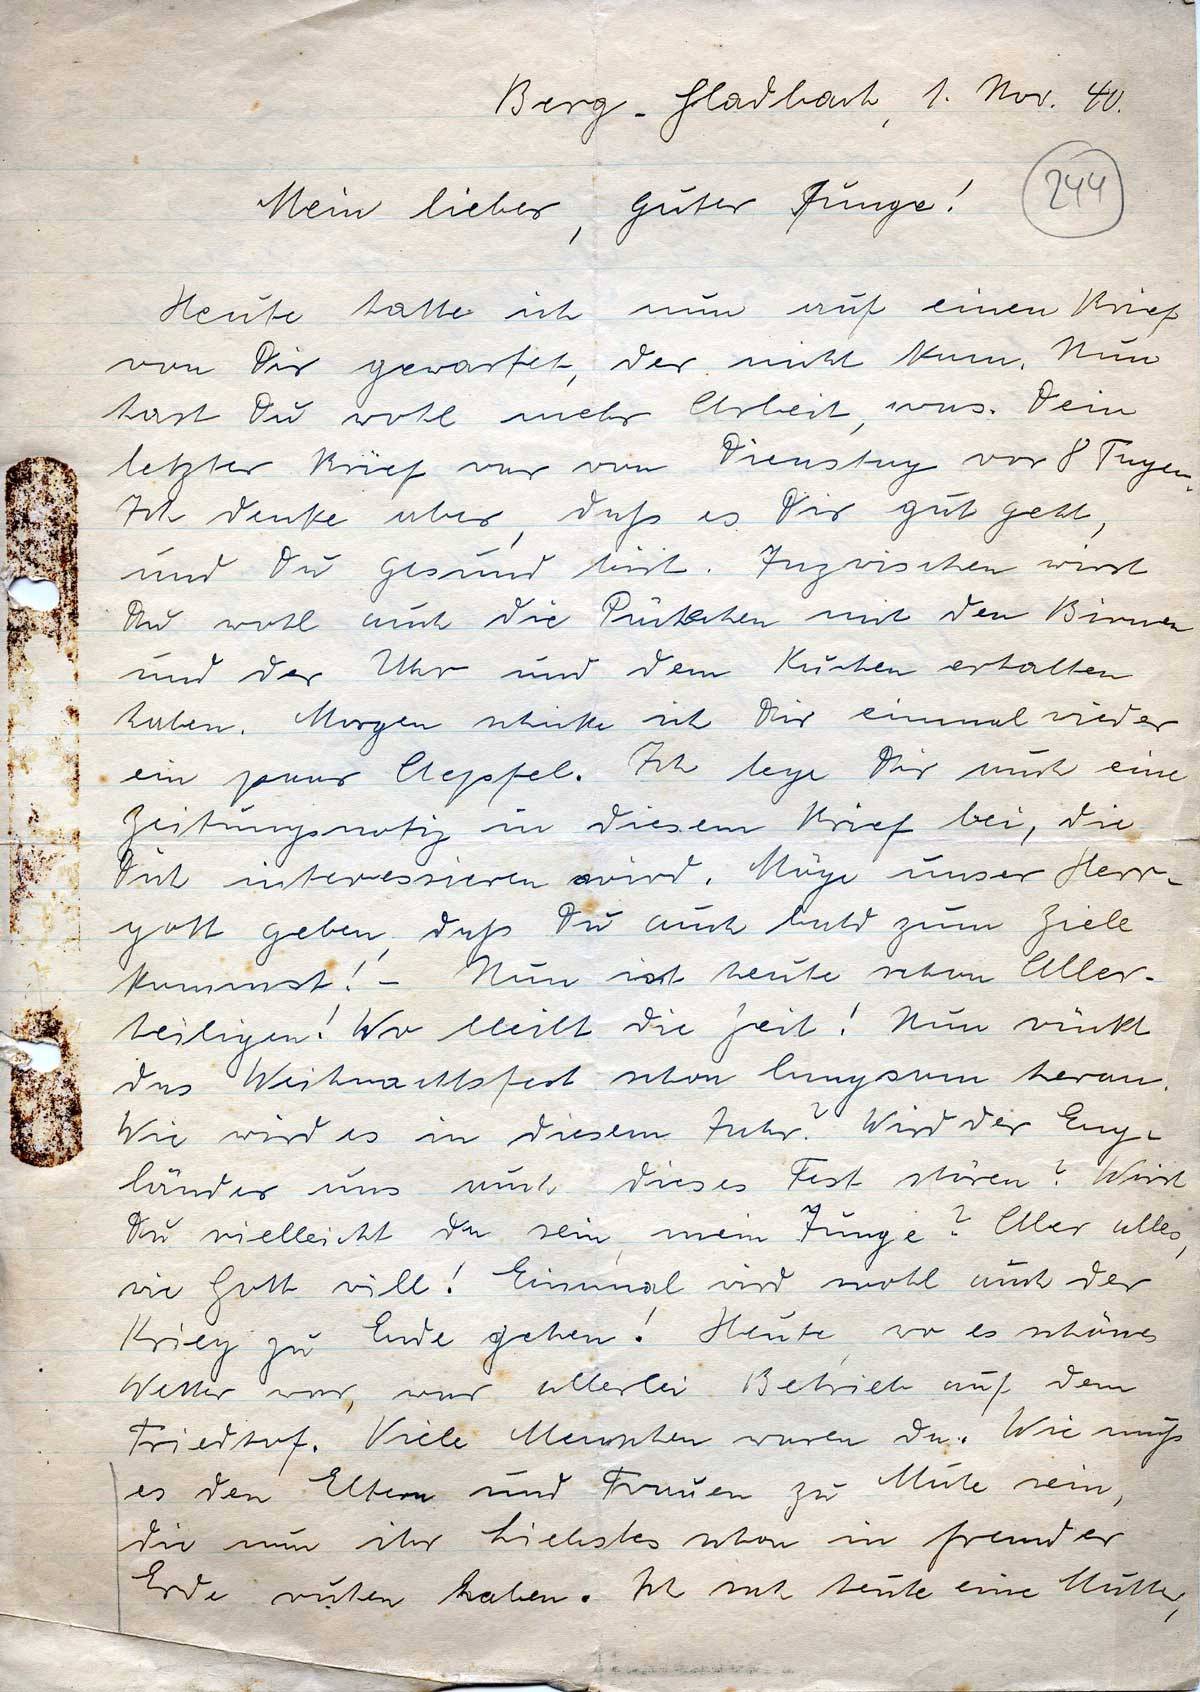 Berg.-Gladbach, 1. Nov. 40.
244
Mein lieber, guter Junge!
Heute hatte ich nun auf einen Brief
von Dir gewartet, der nicht kam. Nun
hast Du wohl mehr Arbeit, was. Dein
letzter Brief war von Dienstag vor 8 Tagen.
Ich denke aber, daß es Dir gut geht,
und Du gesund bist. Inzwischen wirst
Du wohl auch die Päckchen mit den Birnen
und der Uhr und dem Kuchen erhalten
haben. Morgen schicke ich Dir einmal wieder
ein paar Aepfel. Ich lege Dir auch eine
Zeitungsnotiz in diesem Brief bei, die
Dich interessieren wird. Möge unser Herr-
gott geben, daß Du auch bald zum Ziele
kommst! - Nun ist heute schon Aller-
heiligen! Wo bleibt die Zeit! Nun rückt
das Weihnachtsfest schon langsam heran.
Wie wird es in diesem Jahr? Wird der Eng-
länder uns auch dieses Fest stören? Wirst
Du vielleicht da sein, mein Junge? Aber alles,
wie Gott will! Einmal wird wohl auch der
Krieg zu Ende gehen! Heute, wo es schönes
Wetter war, war allerlei Betrieb auf dem
Friedhof. Viele Menschen waren da. Wie muß
es den Eltern und Frauen zu Mute sein,
die nun ihr Liebstes schon in fremder
Erde ruhen haben. Ich sah heute eine Mutter,